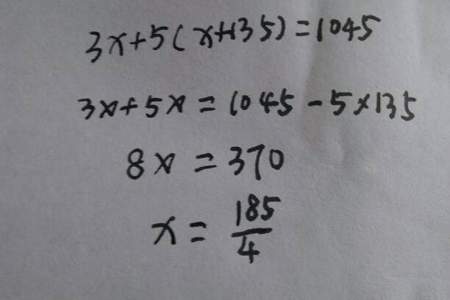 3x+5(x+135)=1045
3x+5x=1045-5×135
8x=370
x=185/4